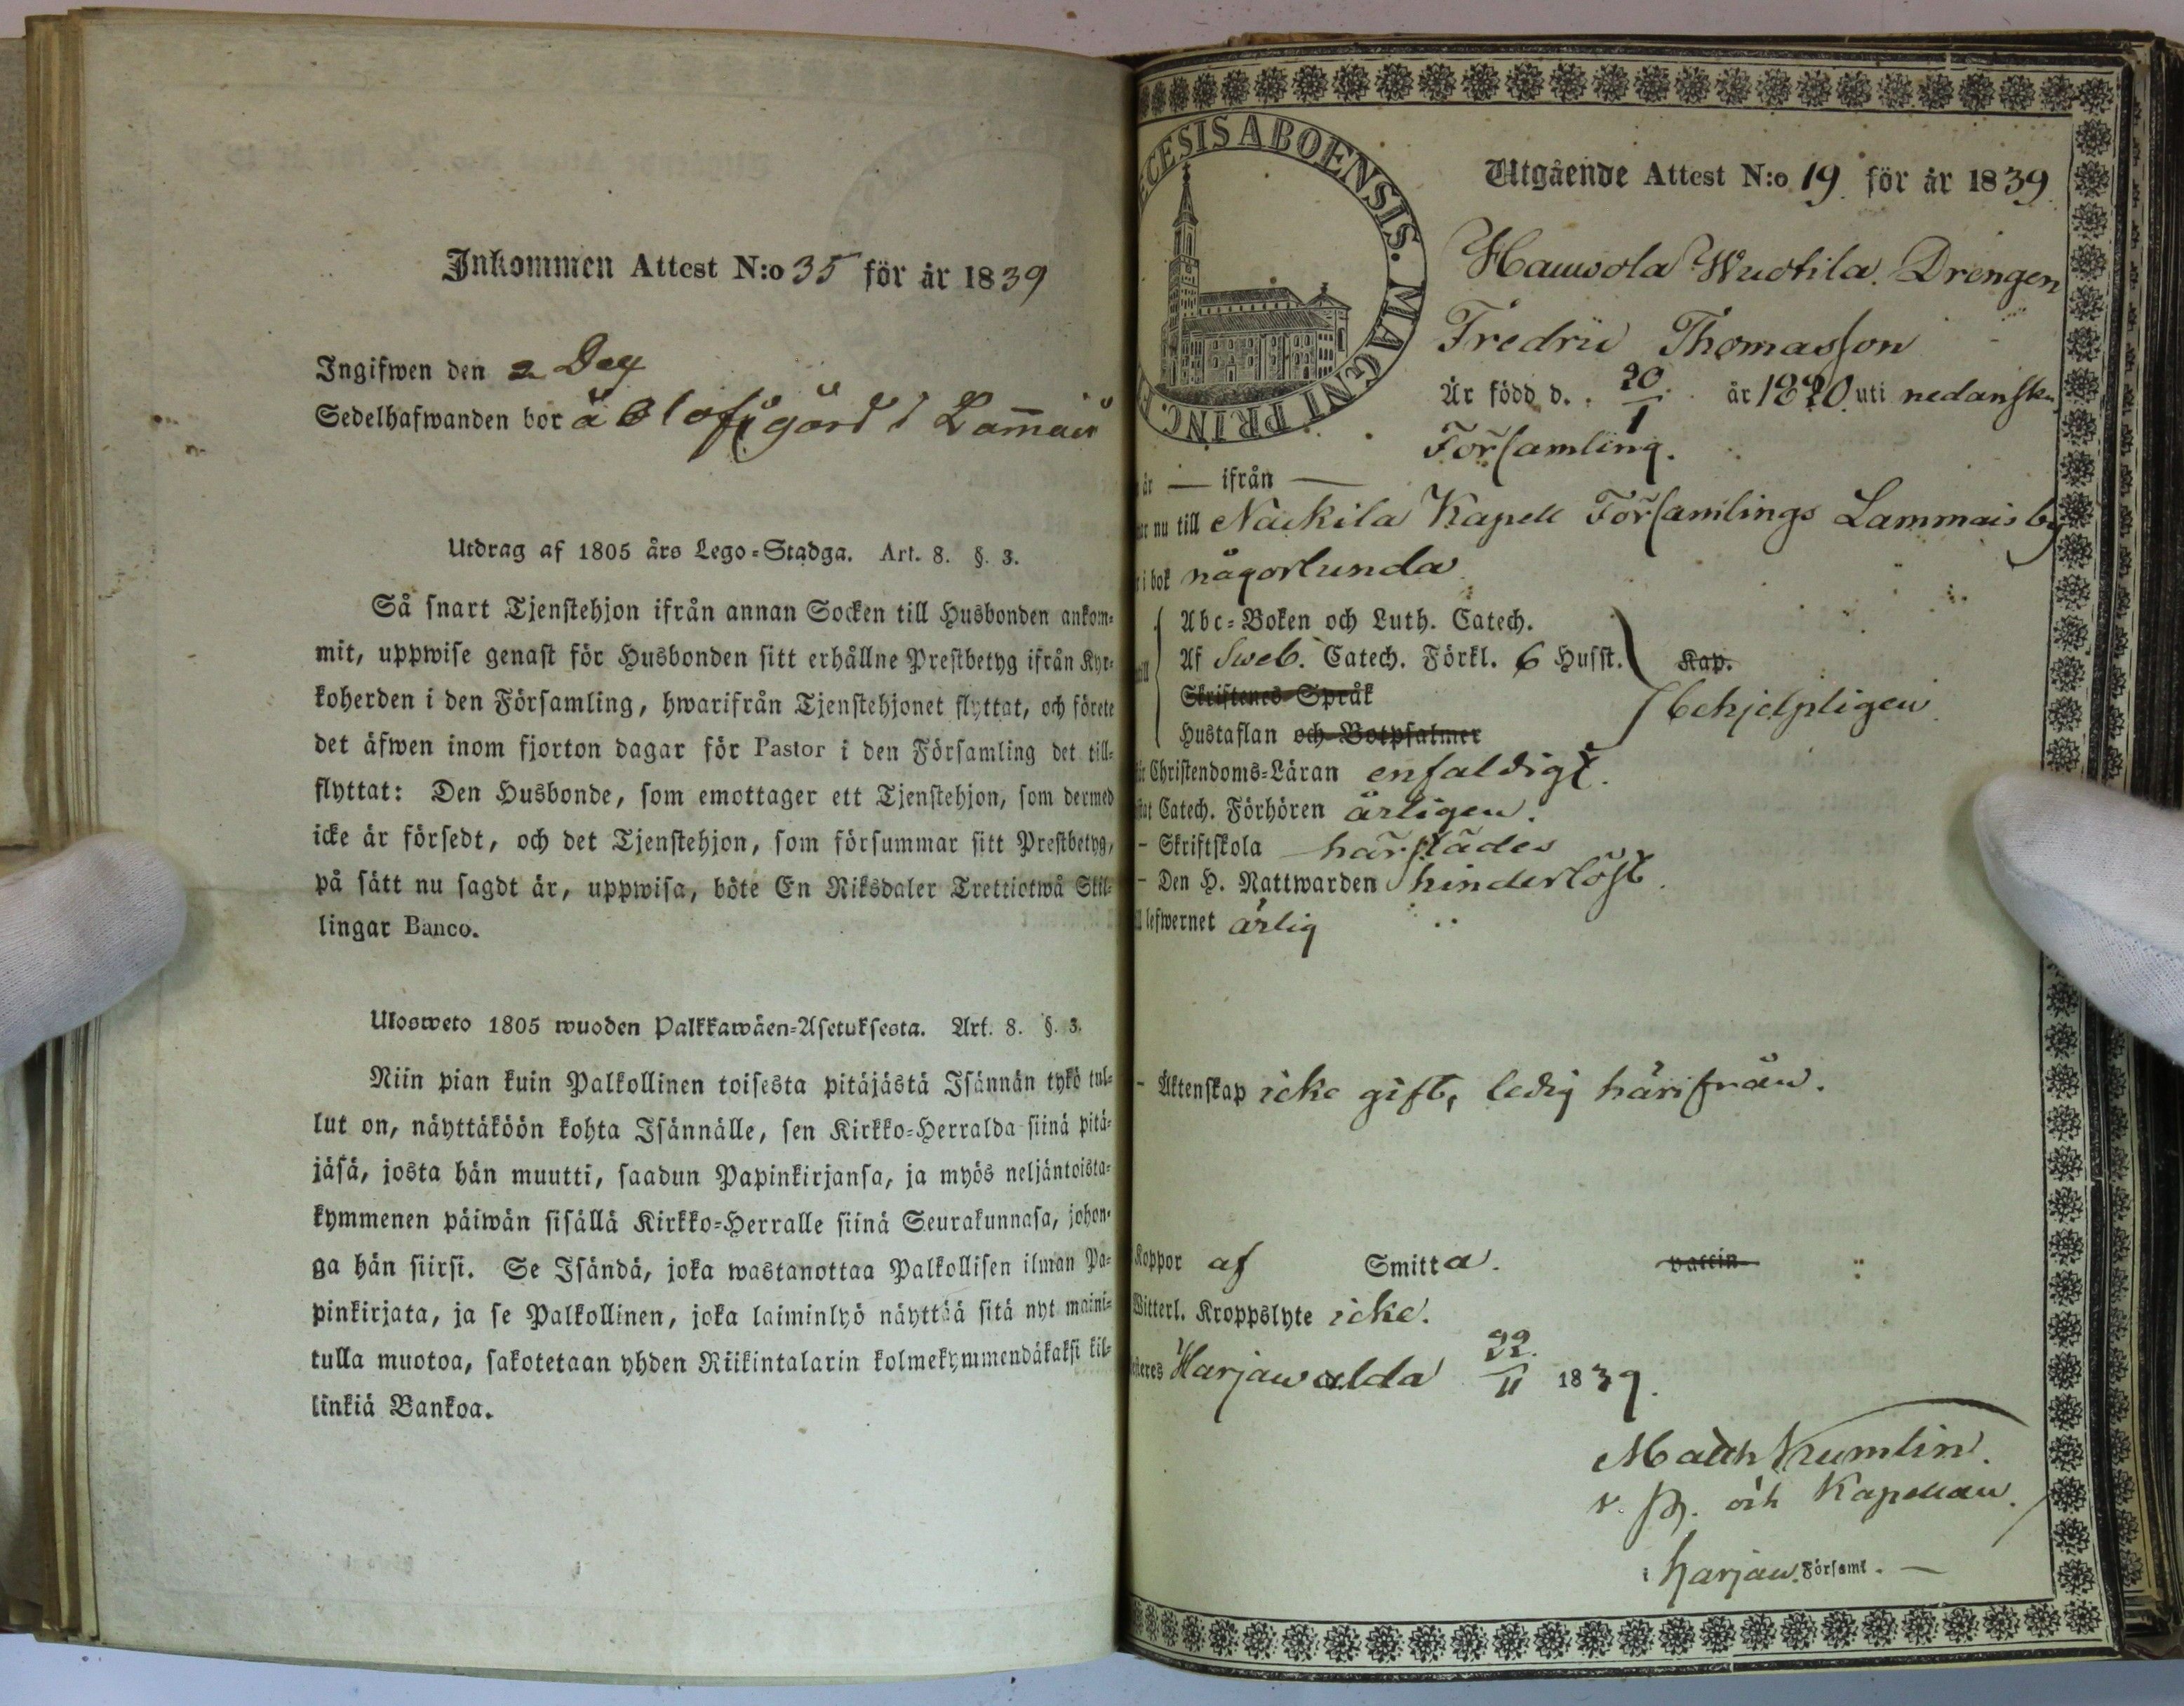 Inkommen Attest N:o 35 för år 1839
Ingifwen den 2 Dec
Sedelhafwanden bor å Olofsgård i Lammais
Utdrag af 1805 års Lego-Stadga. Art. 8. §. 3.
Så snart Tjenstehjon ifrån annan Socken till Husbonden ankom-
mit, uppwise genast för Husbonden sitt erhållne Prestbetyg ifrån Kyr-
koherden i den Församling, hwarifrån Tjenstehjonet flyttat, och förete
det äfwen inom fjorton dagar för Pastor i den Församling det till-
flyttat: Den Husbonde, som emottager ett Tjenstehjon, som dermed
icke är försedt, och det Tjenstehjon, som försummar sitt Prestbetyg,
på sätt nu sagdt är, uppwisa, böte En Riksdaler Trettiotwå Skil-
lingar Banco.
Ulosweto 1805 wuoden Palkkawäen-Asetuksesta. Art. 8. §. 3.
Niin pian kuin Palkollinen toisesta pitäjästä Isännän tykö tul-
lut on, näyttäköön kohta Isännälle, sen Kirkko-Herralda siinä pitä-
jäsä, josta hän muutti, saadun Papinkirjansa, ja myös neljäntoista-
kymmenen päiwän sisällä Kirkko-Herralle siinä Seurakunnasa, johon-
ga hän siirsi. Se Isändä, joka wastanottaa Palkollisen ilman Pa-
pinkirjata, ja se Palkollinen, joka laiminlyö näyttää sitä nyt maini-
tulla muotoa, sakotetaan yhden Riikintalarin kolmekymmendäkaksi kil-
linkiä Bankoa.
CESIS ABOENSIS. MAGNI PRINC. F
Utgående Attest N:o 19. för år 1839.
Hauwola Wuotila. Drengen
Fredric Thomasson
Är född d. 20/1 år 1820 uti nedanskr.
Församling.
år — ifrån —
nu till Nackila Kapell Församlings Lammais by
i bok någorlunda
Abc-Boken och Luth. Catech.
Af Sweb. Catech. Förkl. 6 Husst. Kap.
Skriftenes Språk
behjelpligen
Hustaflan och Botpsalmer
Christendoms-Läran enfaldigt.
Catech. Förhören årligen.
- Skriftskola härstädes
- Den H. Nattwarden hinderlöst.
lefwernet ärlig
- Äktenskap icke gift, ledig härifrån.
Koppor af Smitta. vaccin
Witterl. Kroppslyte icke.
Harjawalda 22/11 1839.
Math Kumlin.
v. p. och Kapellan.
i Harjaw. Församl. —